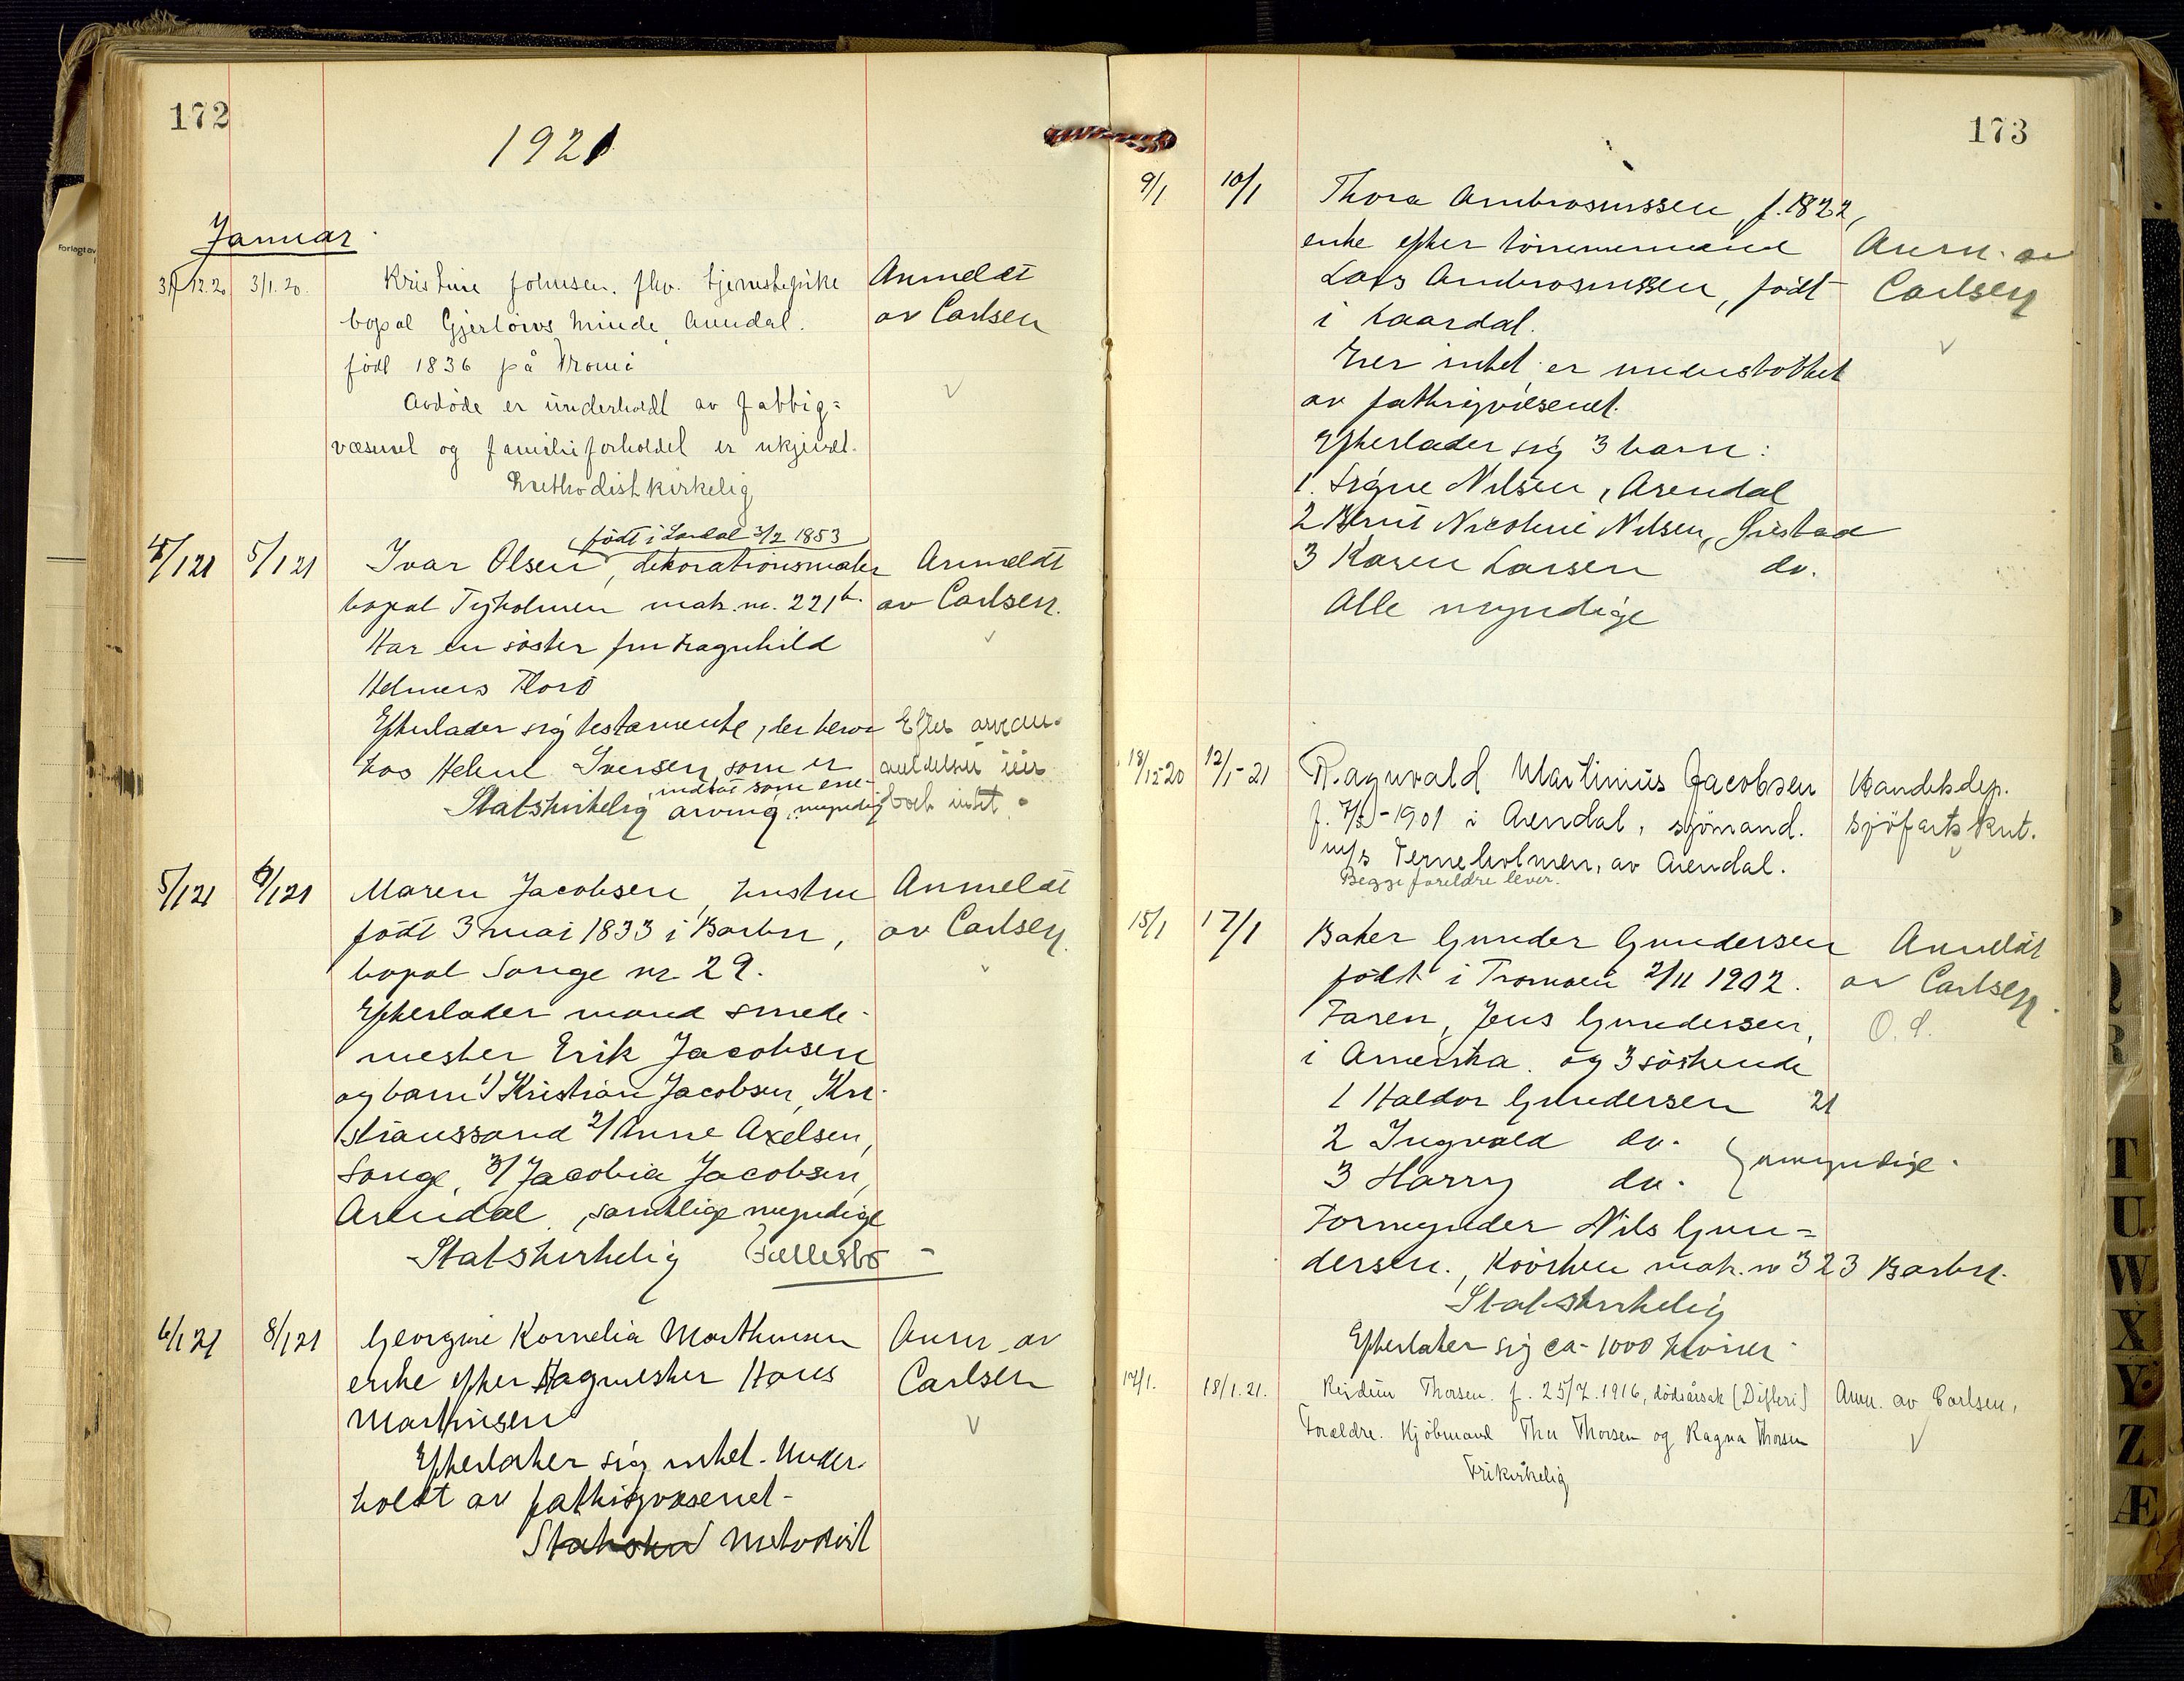 172
1921
Januar
31/12.20 3/1.20. Kristine Johnsen. fhv. tjenestepike Anmeldt
bopæl Gjerløws Minde, Arendal. av Carlsen
född 1836 på Tromö
Avdøde er underholdt av Fattig=
væsenet og familieforholdet er ukjendt.
Methodistkirkelig
født i Lardal 3/2 1853
4/1 21 5/1 21 Ivar Olsen, dekorationsmaler Anmeldt
bopæl Tyholmen matr. nr. 221b. av Carlsen.
Har en søster fru Ragnhild
Helmers Florö
Efterlader sig testamente, der beror Efter
hos Helene Iversen, som er
indsat som ene-
Statskirkelig arving, myndig intet.
5/1 21 6/1 21 Maren Jacobsen, hustru Anmeldt
født 3 mai 1833 i Barbu, av Carlsen.
bopæl Songe nr. 29.
Efterlader mand smede-
mester Erik Jacobsen
og barn 1) Kristian Jacobsen, Kri-
stianssand 2/ Anne Axelsen,
Songe, 3/ Jacobia Jacobsen,
Arendal, samtlige myndige
Statskirkelig Fællesbo -
6/1 21 8/1 21 Georgine Kornelia Marthinsen Anm. av
enke efter Hagmester Hans Carlsen
Marthinsen
Efterlater sig intet. Under-
holdt av fattigvæsenet -
Statskir Metodist
173
9/1 10/1 Thora Ambrosiussen, f. 1822,
enke efter tømmermand Anm. av
Lars Ambrosiussen, født Carlsen
i Laardal.
Eier intet, er understöttet
av fattigvæsenet.
Efterlader sig 3 barn:
1. Signe Nilsen, Arendal
2 Bernt Nicoline Nilsen, Gristad
3 Karen Larsen do.
Alle myndige
18/12-20 12/1-21 Ragnvald Martinius Jacobsen Handelsdep.
f. 7/5-1901 i Arendal, sjömand. Sjöfartsknt.
m/s Terneholmen, av Arendal.
Begge foreldre lever.
15/1 17/1 Baker Gunder Gundersen Anmeldt
født i Tromøen 2/11 1902. av Carlsen.
Faren, Jens Gundersen, O. S.
i Amerika og 3 söskende
1 Haldor Gundersen 21
2 Ingvald do.
3 Harry do. } umyndige.
Formynder Nils Gun=
dersen, matr. nr 323 Barbu.
Statskirkelig
Efterlater sig ca. 1000 kroner -
17/1. 18/1.21. Reidun Thorsen. f. 25/7.1916, dødsårsak (Difteri) Anm. av Carlsen,
Forældre. Kjöbmand Thor Thorsen og Ragna Thorsen
Frikirkelig
T
U
W
X
Y
Z
Æ